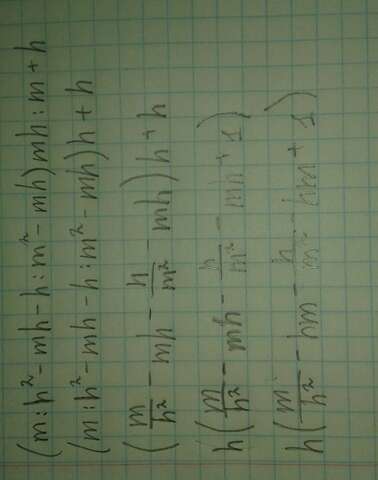 (m:h²-mh-h:m²-mh)mh:m+h
(m:h²-mh-h:m²-mh)h+h
(m/h²-mh-h/m²-mh)h+h
h(m/h²-mh-h/m²-mh+1)
h(m/h²-hm-h/m²-hm+1)